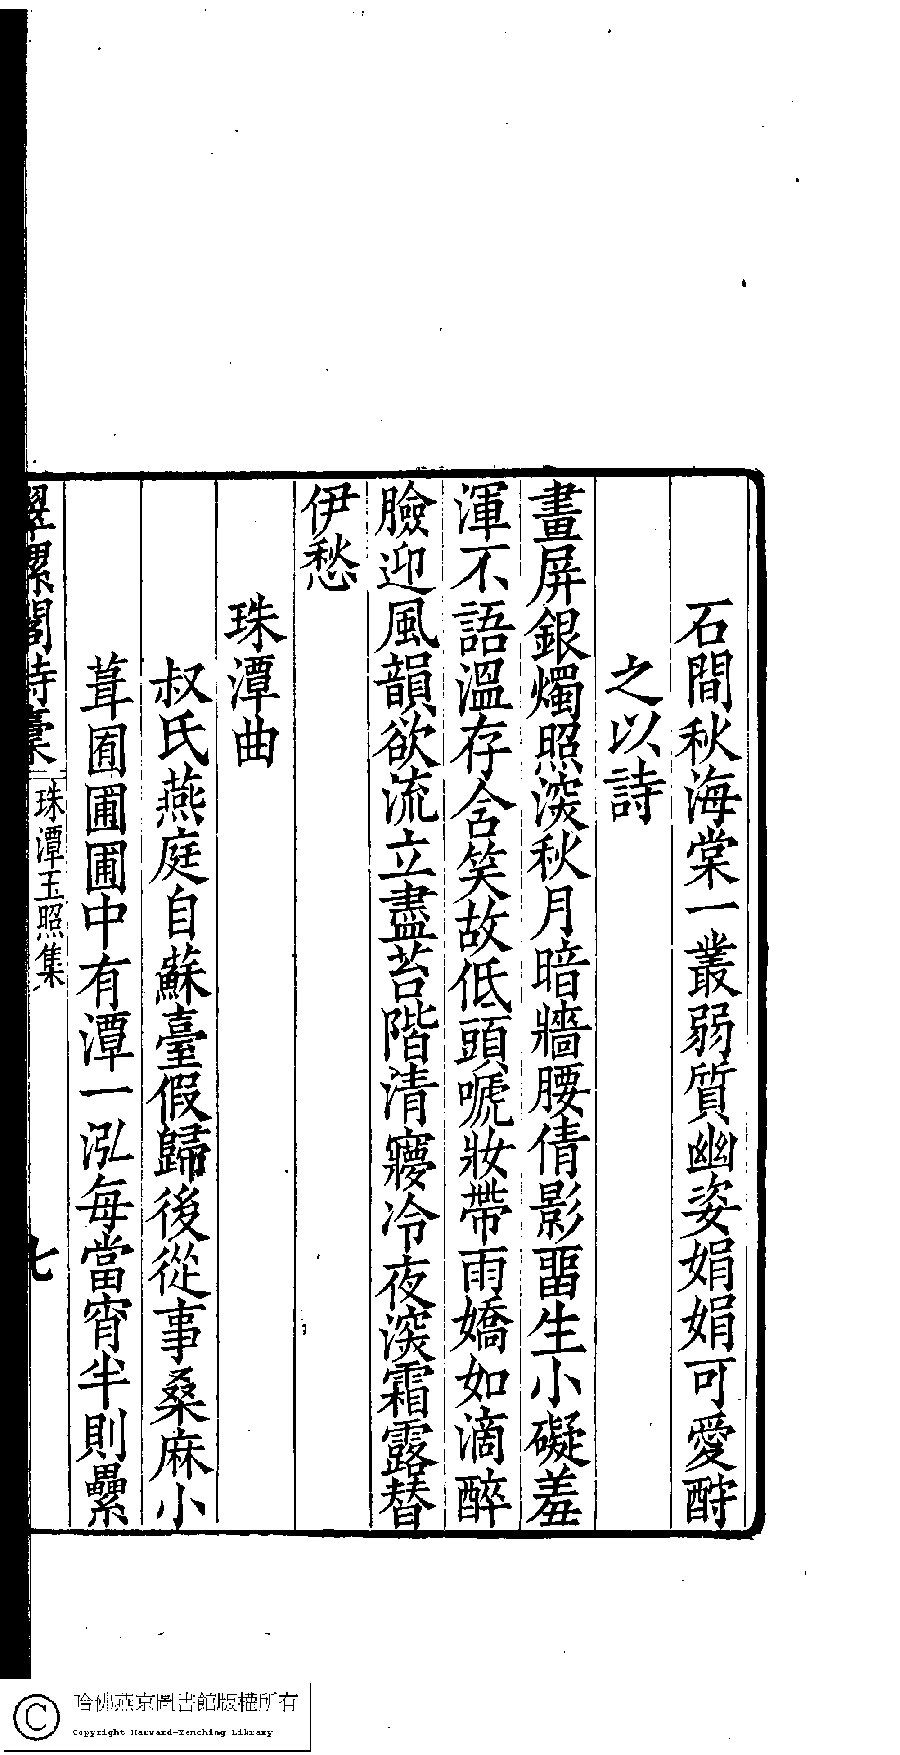 石間秋海棠一叢弱質幽姿娟娟可愛酹
之以詩
畫屏銀燭照深秋月暗牆腰倩影畱生小礙羞
渾不語溫存含笑故低頭嗁妝帶雨嬌如滴醉
臉迎風韻欲流立盡苔階清寢冷夜深霜露替
伊愁
珠潭曲
叔氏燕庭自蘇臺假歸後從事桑麻小
葺囿圃圃中有潭一泓每當宵半則纍
翠螺閣詩藁
珠潭玉照集
七
哈佛燕京圖書館版權所有
Copyright Harvard-Yenching Library